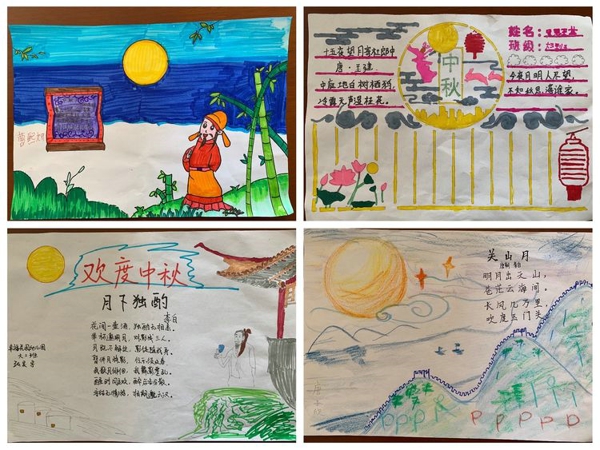 十五夜望月寄杜郎中
唐·王建
中庭地白树栖鸦,
冷露无声湿桂花。
中秋
姓名:
班级:
今夜月明人尽望,
不知秋思落谁家。
欢度中秋
月下独酌
李白
花间一壶酒,独酌无相亲。
举杯邀明月,对影成三人。
月既不解饮,影徒随我身。
暂伴月将影,行乐须及春。
我歌月徘徊,我舞影零乱。
醒时同交欢,醉后各分散。
永结无情游,相期邈云汉。
大二班
关山月
明月出天山,
苍茫云海间。
长风几万里,
吹度玉门关